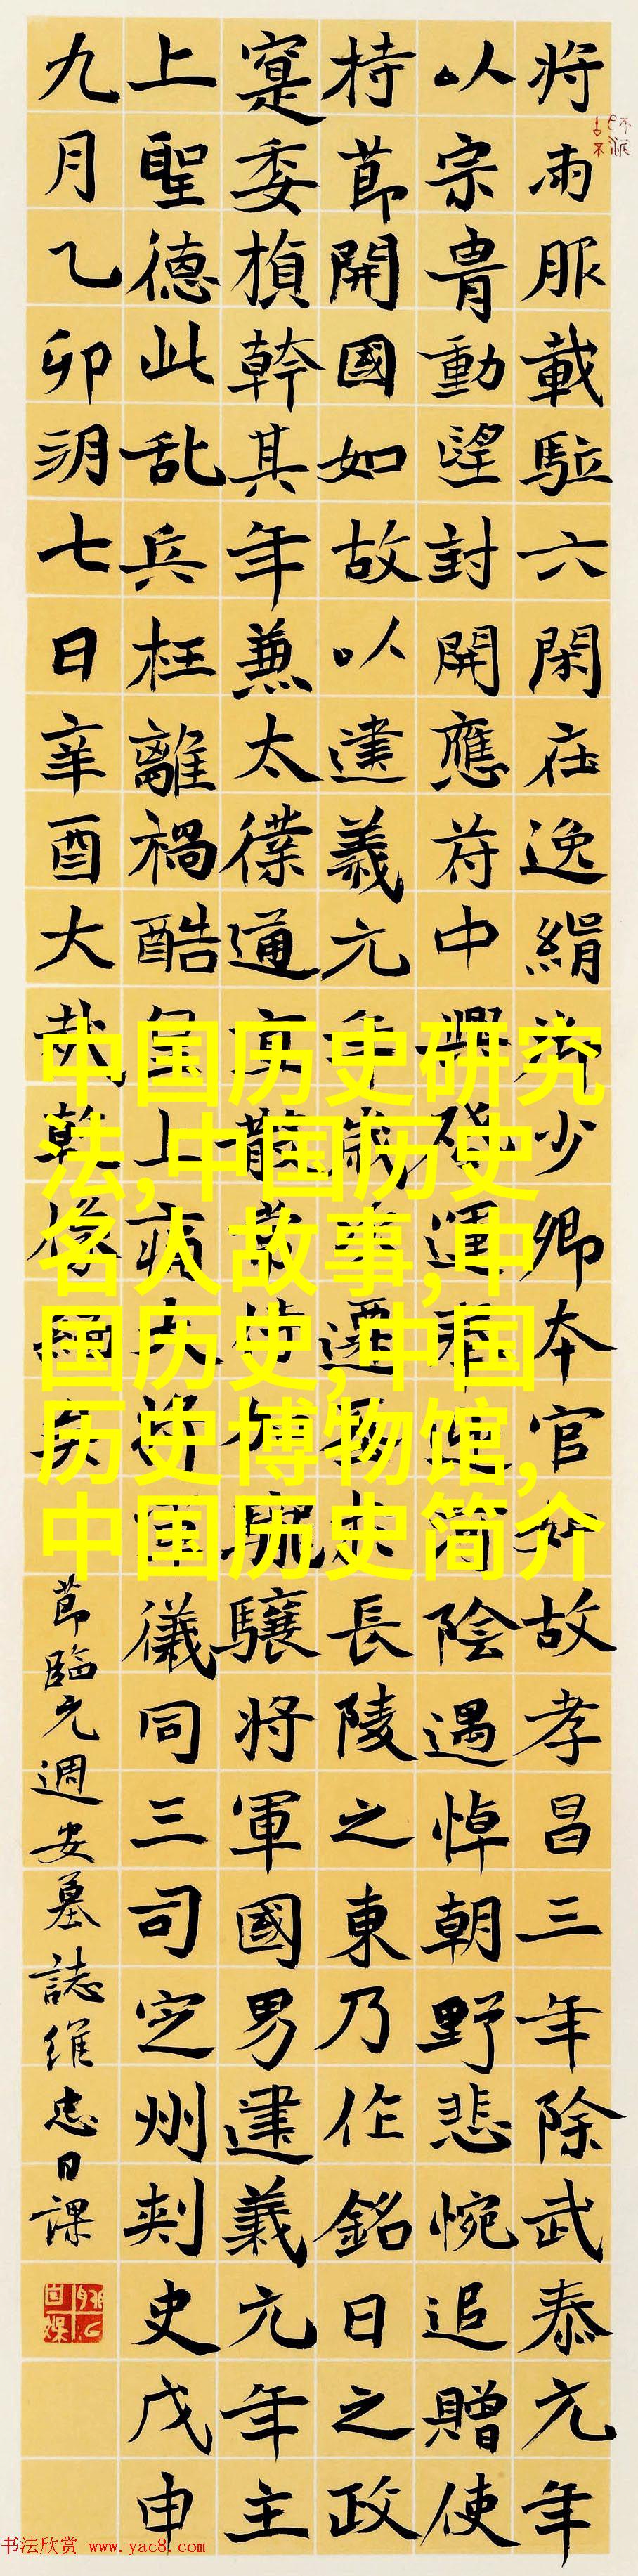 将雨服載駈六閑在逸絹少卿本官如故孝昌三年除武泰元年
以宗胄動望封開應符中興運奉迎陰遇悼朝野悲惋追贈使
持節開國如故以建義元年歲遷長陵之東乃作銘曰之政
寔委楨幹其年兼太僕通直散常侍驤將軍國男建義元年主
上聖德此乱兵枉離禍酷上大將軍儀同三司定州刺史戊申
九月乙卯朔七日辛酉大哉乾
節臨元週安墓誌維忠日課
中国历史研究
法,中国历史
名人故事,中
国历史,中国
历史博物馆,
中国历史简介
书法欣赏 www.yac8.com